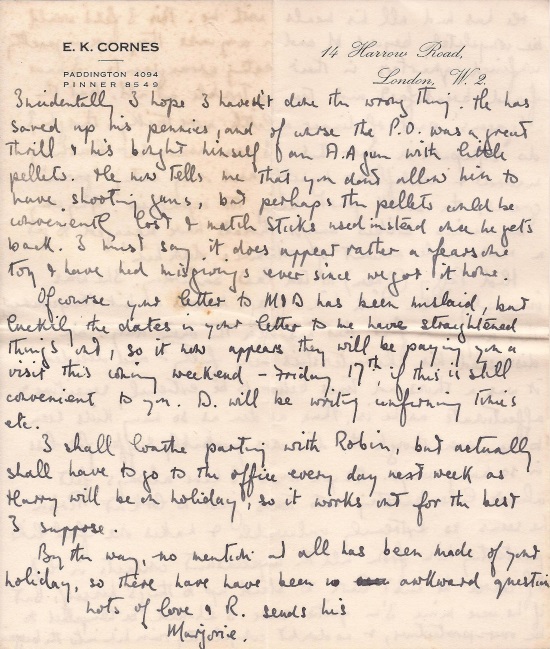 E. K. CORNES
PADDINGTON 4094
PINNER 8549
14 Harrow Road,
London, W. 2.
Incidentally I hope I haven't done the wrong thing. He has
saved up his pennies, and of course the P.O. was a great
thrill & he's bought himself an A.A gun with little
pellets. He now tells me that you don't allow him to
have shooting guns, but perhaps the pellets could be
conveniently lost & match sticks used instead once he gets
back. I must say it does appear rather a fearsome
toy & have had misgivings ever since we got it home.
Of course your letter to M & D has been mislaid, but
luckily the dates in your letter to me have straightened
things out, so it now appears they will be paying you a
visit this coming weekend – Friday 17th if this is still
convenient to you. D. will be writing confirming times
etc.
I shall loathe parting with Robin, but actually
shall have to go to the office every day next week as
Harry will be on holiday, so it works out for the best
I suppose.
By the way, no mention at all has been made of your
holiday, so there have have been no awkward question
Lots of love & R. sends his
Marjorie.